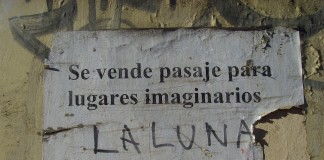 Se vende pasaje para
lugares imaginarios
LALUNA